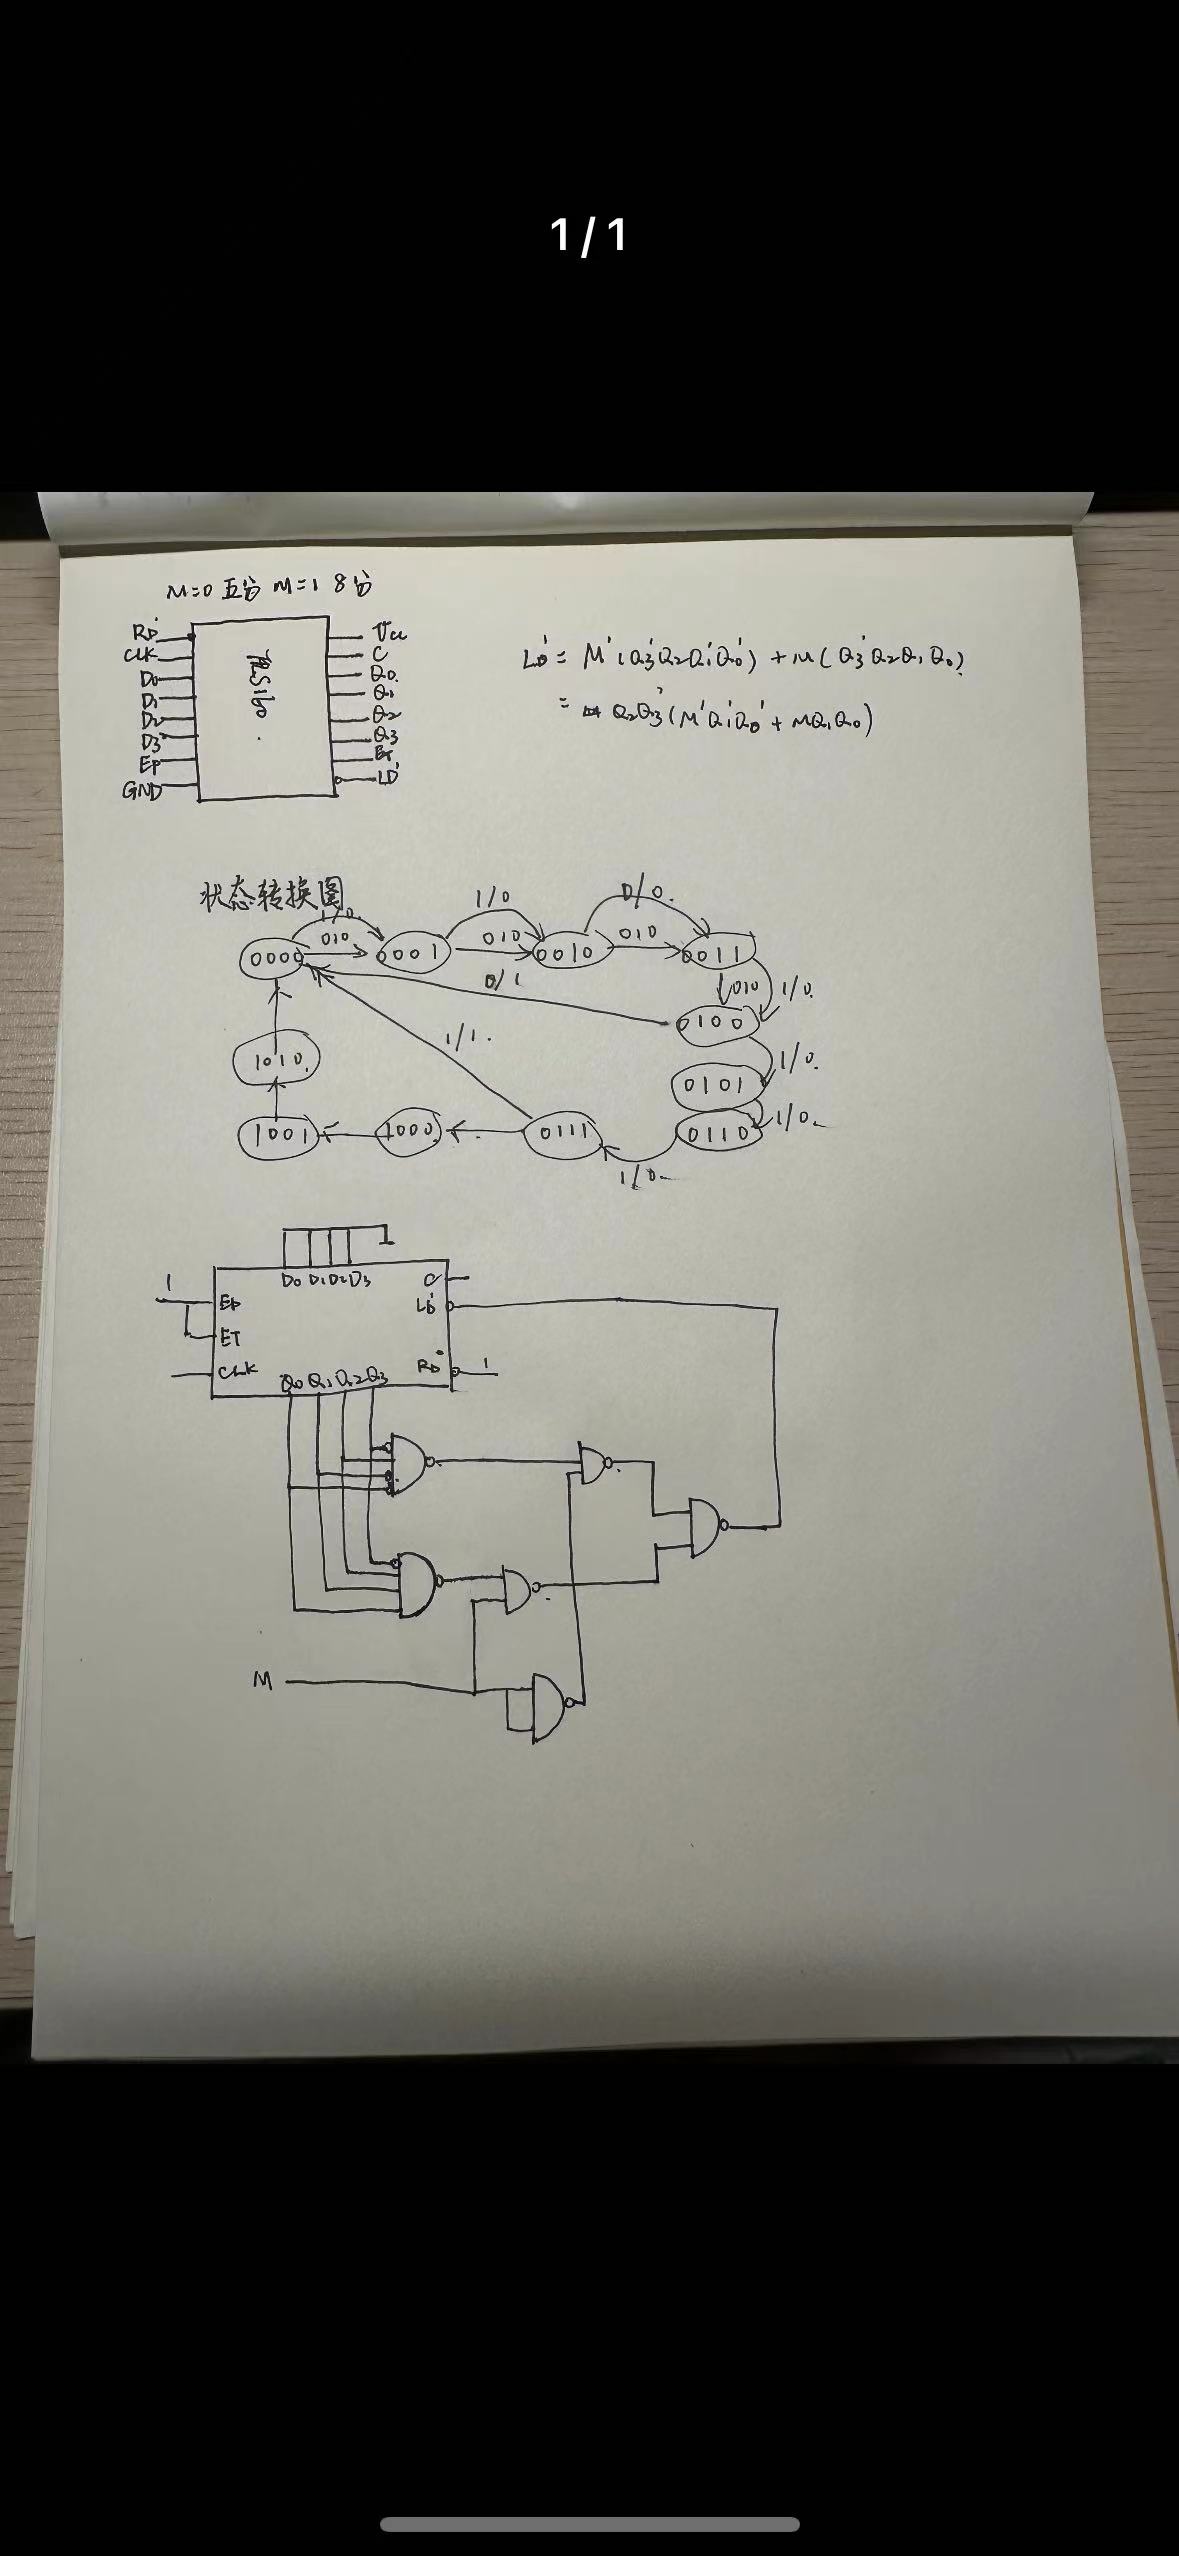 1/1
M=0 五分 M=1 8分
RD'
CLK
D0
D1
D2
D3
EP
GND
LS160
Vcc
C
Q0
Q1
Q2
Q3
ET
LD'
LD' = M'(Q3'Q2Q1'Q0') + M(Q3'Q2Q1Q0)
= Q2Q3'(M'Q1'Q0' + MQ1Q0)
状态转换图
1/0. 1/0 0/0.
0000 0/0 0001 0/0 0010 0/0 0011
0/1 0/0 1/0.
0100
1/1. 1/0.
1010. 0101
1/0.
1001 1000 0111 0110
1/0.
D0 D1 D2 D3 C
1 EP LD'
ET
CLK RD' 1
Q0 Q1 Q2 Q3
M